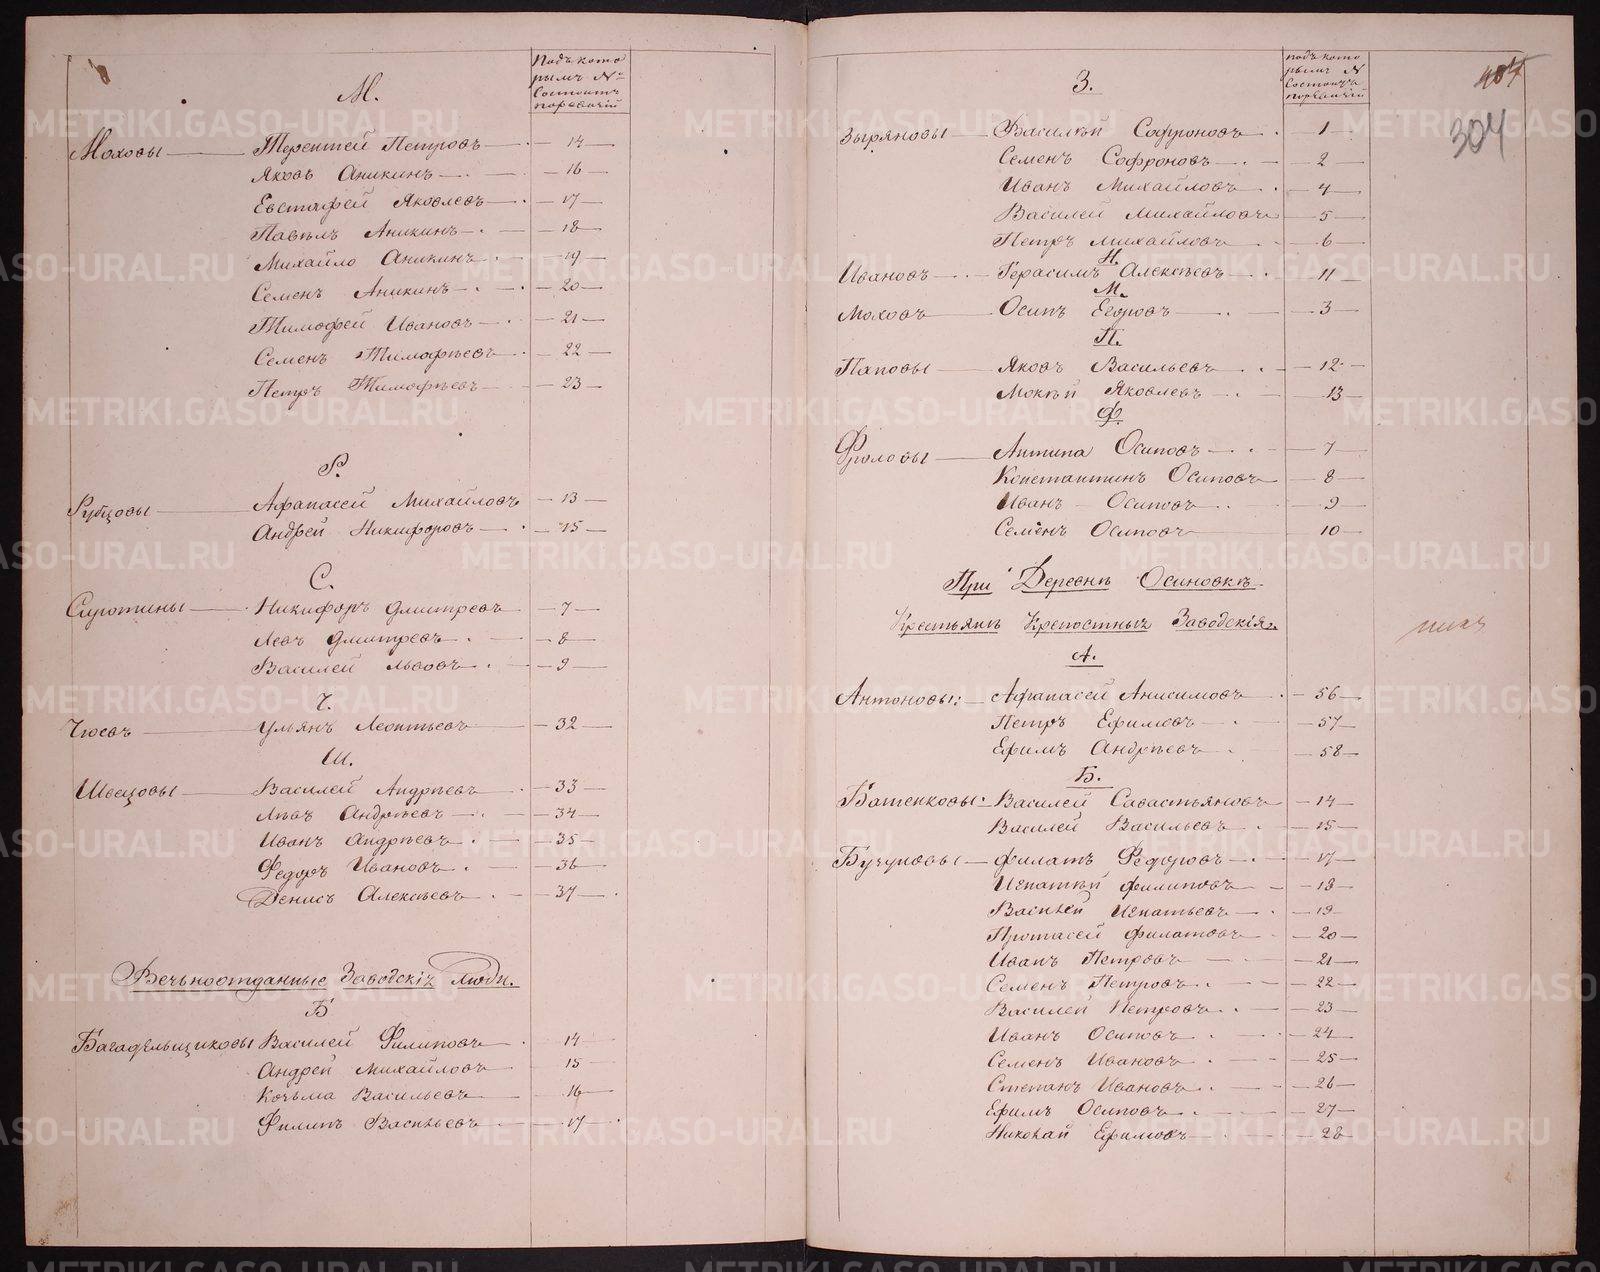 Подъ кото
рымъ №
Состоитъ
по ревизiи
М.
Моховы Терентей Петровъ 14
Яковъ Аникинъ 16
Евстафей Яковлевъ 17
Павелъ Аникинъ 18
Михайло Аникинъ 19
Семенъ Аникинъ 20
Тимофей Ивановъ 21
Семенъ Тимофѣевъ 22
Петръ Тимофѣевъ 23
Р.
Рубцовы Афанасей Михайловъ 13
Андрей Никифоровъ 15
С.
Сиротины Никифоръ Дмитревъ 7
Левъ Дмитревъ 8
Василей Львовъ 9
Ч.
Ульянъ Леонтьевъ 32
Ш.
Швецовы Василей Андрѣевъ 33
Левъ Андрѣевъ 34
Иванъ Андрѣевъ 35
Федоръ Ивановъ 36
Денисъ Алексѣевъ 37
Вечьноотданные Заводскiя люди.
Б
Багадѣльщиковы Василей Филиповъ 14
Андрей Михайловъ 15
Козьма Васильевъ 16
Филипъ Васильевъ 17
подъ кото
рымъ №
Состоитъ
по ревизiи
407
304
З.
Зыряновы Василѣй Софроновъ 1
Семенъ Софроновъ 2
Иванъ Михайловъ 4
Василей Михайловъ 5
Петръ Михайловъ 6
И.
Ивановъ Герасимъ Алексѣевъ 11
М.
Моховъ Осипъ Егоровъ 3
П.
Паповы Яковъ Васильевъ 12
Мокѣй Яковлевъ 13
Ф.
Фроловы Антипа Осиповъ 7
Константинъ Осиповъ 8
Иванъ Осиповъ 9
Семенъ Осиповъ 10
При Деревнѣ Осиновкѣ
Крестьянъ Крепостных Заводскiя.
А.
Антоновы: Афанасей Анисимовъ 56
Петръ Ефимовъ 57
Ефимъ Андрѣевъ 58
Б.
Батенковы: Василей Савастьяновъ 14
Василей Васильевъ 15
Бучуновы Филатъ Федоровъ 17
Игнатѣй Филиповъ 18
Василей Игнатьевъ 19
Протасей Филатовъ 20
Иванъ Петровъ 21
Семенъ Петровъ 22
Василей Петровъ 23
Иванъ Осиповъ 24
Семенъ Ивановъ 25
Степанъ Ивановъ 26
Ефимъ Осиповъ 27
Николай Ефимовъ 28
METRIKI.GASO-URAL.RU